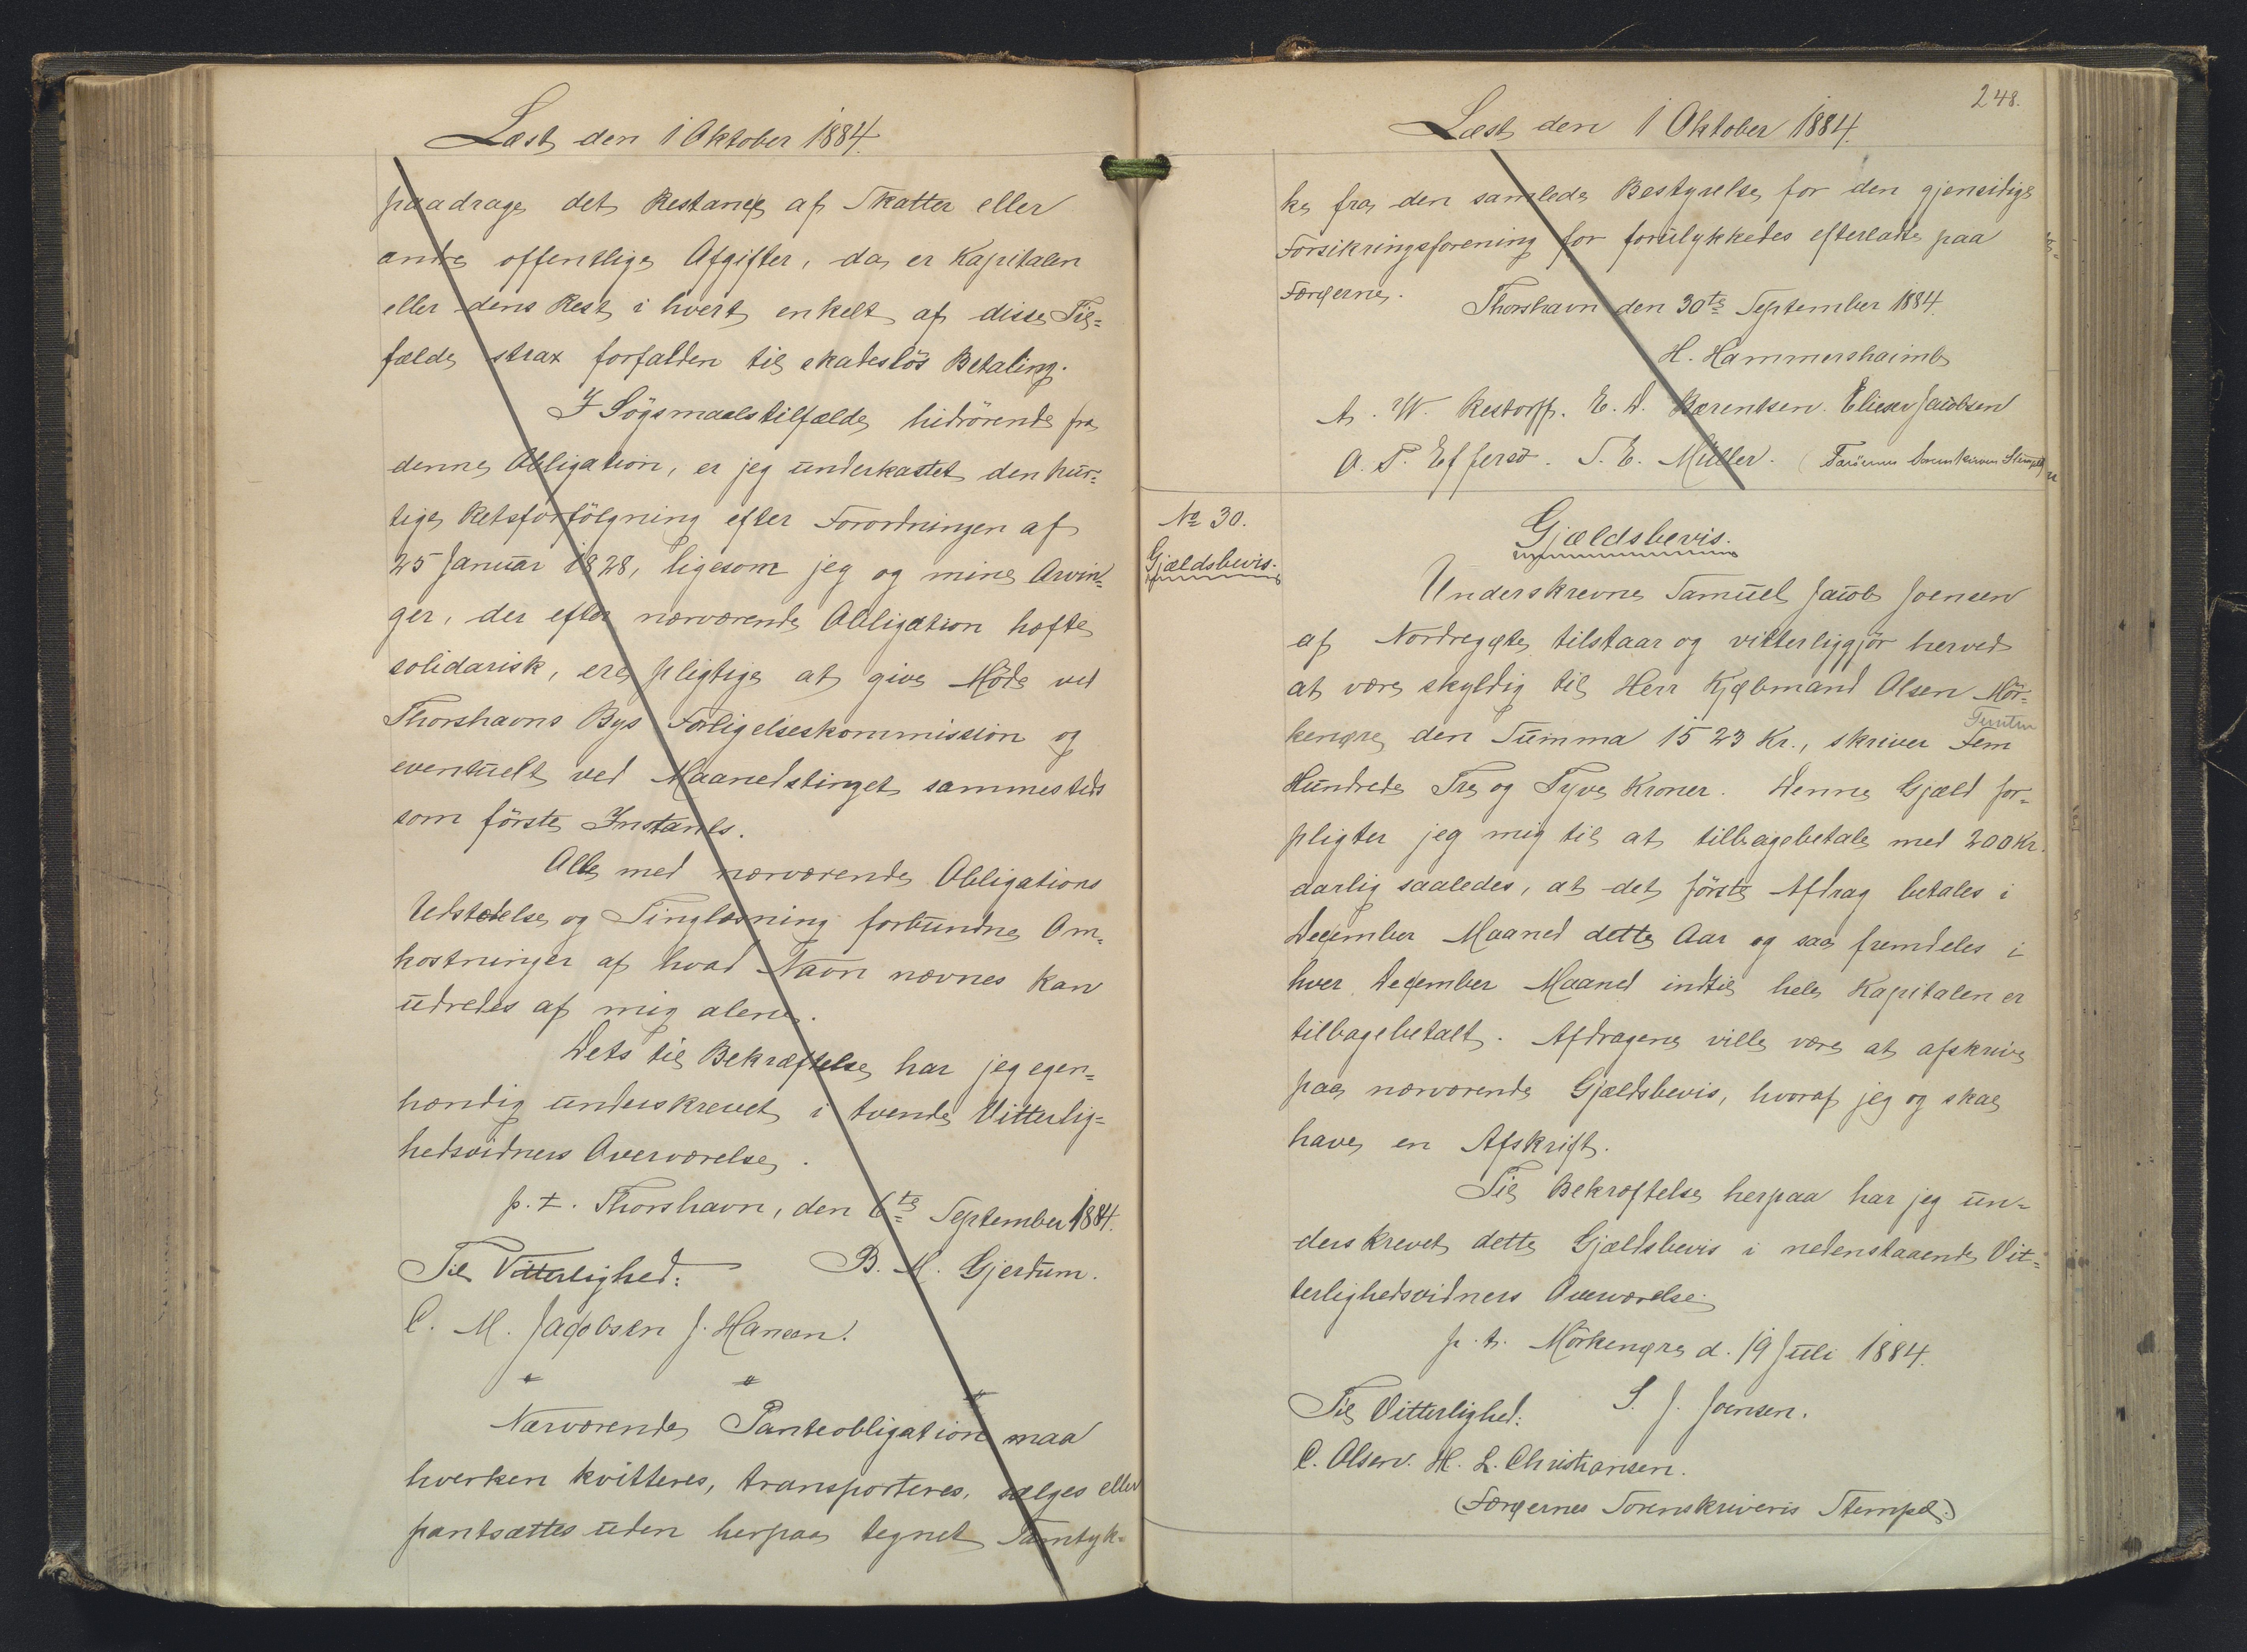 Læst den 1 Oktober 1884.
paadrage det Restancer af Skatter eller
andre offentlige Afgifter, da er Kapitalen
eller dens Rest i hvert enkelt af disse Til-
fælde strax forfalden til skadeslös Betaling.
I Sögsmaalstilfælde hidrörende fra
denne Obligation, er jeg underkastet den hur-
tige Retsforfölgning efter Forordningen af
25 Januar 1828, ligesom jeg og mine Arvin-
ger, der efter nærværende Obligation hæfte
solidarisk, ere pligtige at give Möde ved
Thorshavns Bys Forligelseskommission og
eventuelt ved Maanedstinget sammesteds
som förste Instants.
Alle med nærværende Obligations
Udstedelse og Tinglæsning forbundne Om-
kostninger af hvad Navn nævnes kan
udredes af mig alene.
Dets til Bekræftelse har jeg egen-
hændig underskrevet i tvende Vitterlig-
hedsvidners Overværelse.
p. t. Thorshavn, den 6te September 1884.
Til Vitterlighed: B. M. Gjerdum.
C. M. Jacobsen J. Hansen.
" " "
Nærværende Panteobligation maa
hverken kvitteres, transporteres, sælges eller
pantsættes uden herpaa tegnet Samtyk-
248.
Læst den 1 Oktober 1884.
ke fra den samlede Bestyrelse for den gjensidige
Forsikringsforening for forulykkedes efterladte paa
Færøerne.
Thorshavn den 30te September 1884.
H. Hammershaimb
A. W. Restorff. E. D. Bærentsen. Elieser Jacobsen
O. P. Effersö. S. E. Müller. (Færöernes Sorenskrivers Stempel)
No 30.
Gjældsbevis.
Gjældsbevis.
Underskrevne Samuel Jacob Joensen
af Nordregøte tilstaar og vitterliggjör herved
at være skyldig til Herr Kjøbmand Olsen Mör-
Femten
kengre den Summa 1523 Kr., skriver Fem
Hundrede Tre og Tyve Kroner. Denne Gjæld for-
pligter jeg mig til at tilbagebetale med 200 Kr.
aarlig saaledes, at det förste Afdrag betales i
December Maaned dette Aar og saa fremdeles i
hver December Maaned indtil hele Kapitalen er
tilbagebetalt. Afdragene ville være at afskrive
paa nærværende Gjældsbevis, hvoraf jeg og skal
have en Afskrift.
Til Bekræftelse herpaa har jeg un-
derskrevet dette Gjældsbevis i nedenstaaende Vit-
terlighedsvidners Overværelse.
p. t. Mörkengre d. 19 Juli 1884.
Til Vitterlighed: S. J. Joensen.
C. Olsen. H. L. Christiansen.
(Færøernes Sorenskriveris Stempel.)